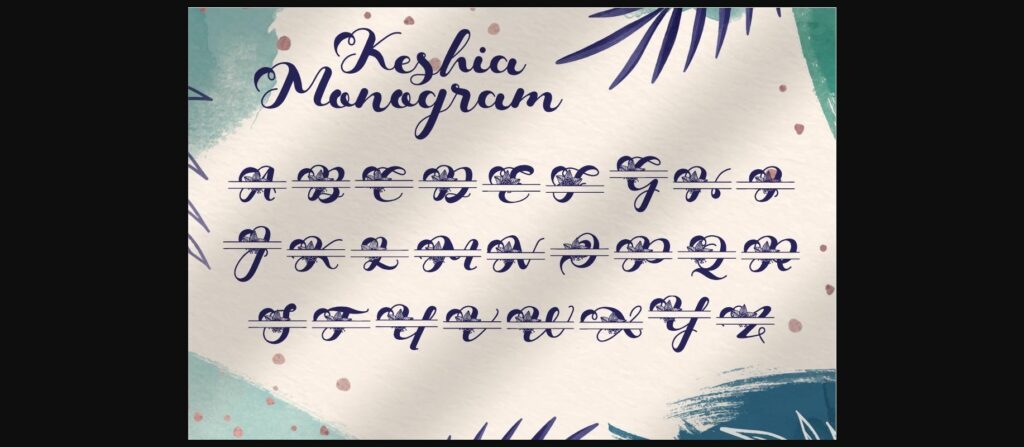 Keshia
Monogram
A B C D E F G H I
J K L M N O P Q R
S T U V W X Y Z